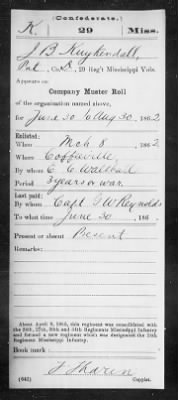 (Confederate.)
K. 29 Miss.
J B Kuykendall,
Pvt., Co. D, 29 Reg't Mississippi Vols.
Appears on
Company Muster Roll
of the organization named above,
for June 30 to Aug 30, 1862
Enlisted:
When Mch 8, 1862
Where Coffeeville,
By whom E C Walthall
Period 3 years or war.
Last paid:
By whom Capt J W Reynolds
To what time June 30, 186 .
Present or absent Present
Remarks:
About April 9, 1865, this regiment was consolidated with
the 24th, 27th, 30th and 34th Regiments Mississippi Infantry
and formed a new regiment which was designated the 24th
Regiment Mississippi Infantry.
Book mark:
(642) Copyist.